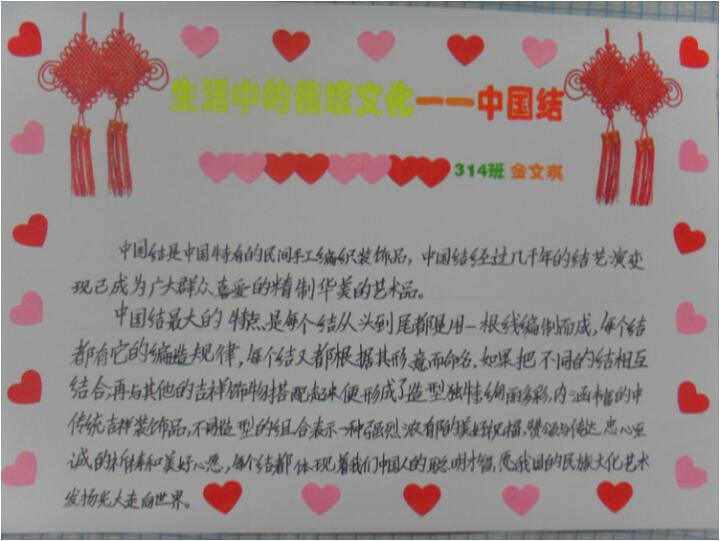 生活中的传统文化———中国结
314班 金文琪
中国结是中国特有的民间手工编织装饰品，中国结经过几千年的结艺演变
现已成为广大群众喜爱的精制华美的艺术品。
中国结最大的特点是每个结从头到尾都是用一根线编制而成，每个结
都有它的编造规律，每个结又都根据其形、意而命名。如果把不同的结相互
结合，再与其他的吉祥饰物搭配起来便形成了造型独特绚丽多彩，内涵丰富的中
传统吉祥装饰品，不同造型的组合表示一种强烈浓郁的美好祝福，赞颂与传达忠心至
诚的祈祷和美好心愿，每个结都体现着我们中国人的聪明才智，愿我国的民族文化艺术
发扬光大走向世界。